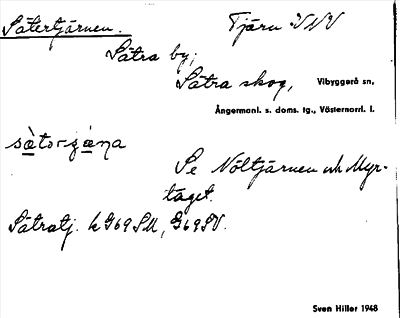 Sätertjärnen. Tjärn VNV
Sätra by,
Sätra skog, Vibyggerå sn,
Ångermanl. s. doms. tg., Västernorrl. l.
Se Nöltjärnen och Myr-
taget.
Sätratj. k G69SM, G69SV.
Sven Hiller 1948